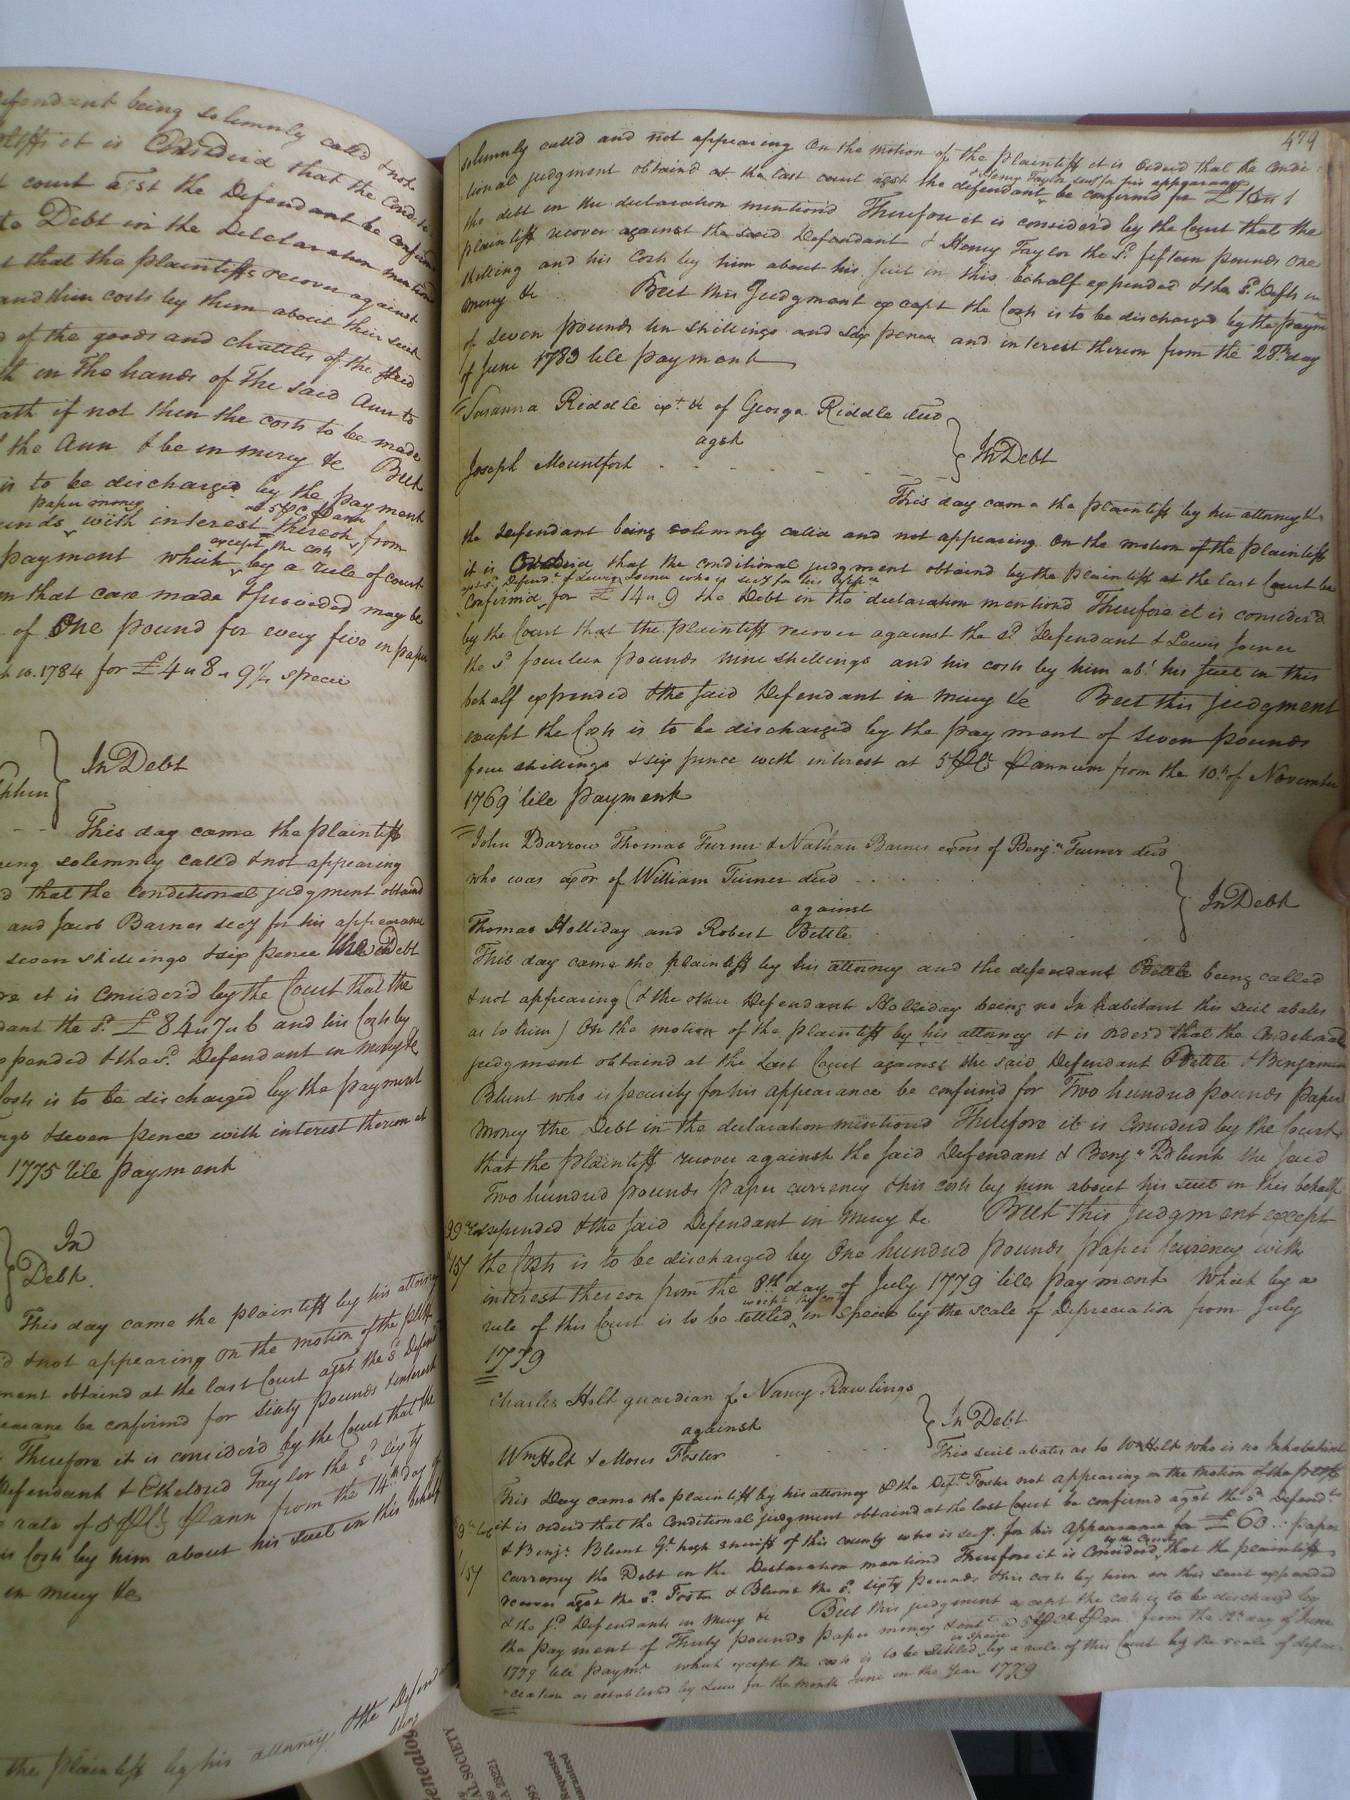 efendant being solemnly calld & not
tiffs it is Considerd that the Condit
t court agst the Defendant be confirm
to Debt in the Declaration mentiond
t that the plaintiffs recover against
and their costs by them about their suit
d of the goods and chattles of the said
th in the hands of the said Ann to
ath if not then the costs to be made
f the Ann & be in mercy &c But
is to be discharged by the payment
paper money at 5 PCt Pann
unds with interest thereon from
except the costs
payment which by a rule of court
m that case made & provided may be
of One pound for every five in paper
1784 for £4 u 8 u 9 1/2 specie
In Debt
phen
This day came the plaintiff
being solemnly called & not appearing
d that the Conditional judgment obtaind
and Jacob Barnes secy for his appearance
seven shillings & six pence the Debt
re it is considerd by the Court that the
dant the sd £84 u 7 u 6 and his Costs by
xpended & the sd Defendant in mercy &c
Costs is to be discharged by the payment
ngs & seven pence with interest thereon at
1775 till payment
In
Debt.
This day came the plaintiff by his attorney
d & not appearing on the motion of the pltff
ment obtaind at the last Court agst the sd Defend
earance be confirmd for sixty pounds & interest
Therefore it is considerd by the Court that the
Defendant & Etheldred Taylor the sd sixty
rate of 5 PCt Pann from the 14th day of
is Costs by him about his suit in this behalf
in mercy &c
the plaintiff by his attorney & the Defend
being
479
solemnly calld and not appearing On the motion of the plaintiff it is Orderd that the Condi
tional judgment obtaind at the last court agst the defendant be confirmd for £15 u 1
& Henry Taylor secy for his appearance
the debt in the declaration mentiond Therefore it is considerd by the Court that the
plaintiff recover against the said Defendant & Henry Taylor the sd fifteen pounds One
shilling and his Costs by him about his suit in this behalf expended & the sd Defts in
mercy &c But this Judgment except the Costs is to be discharged by the paymt
of seven pounds ten shillings and six pence and interest thereon from the 28th day
of June 1783 till payment
Susanna Riddle ext &c of George Riddle decd
agst
Joseph Mountfort
In Debt
This day came the plaintiff by his attorney &
the Defendant being solemnly calld and not appearing On the motion of the plaintiff
it is Orderd that the conditional judgment obtaind by the plaintiff at the last Court be
agst sd Defendt & Lewis Joiner who is secy for his appce
Confirmd for £14 u 9 the Debt in the declaration mentiond Therefore it is considerd
by the Court that the plaintiff recover against the sd Defendant & Lewis Joiner
the sd fourteen pounds nine shillings and his costs by him abt his suit in this
behalf expended & the said Defendant in mercy &c But this judgment
except the Costs is to be discharged by the payment of seven pounds
four shillings & six pence with interest at 5 PCt Pannum from the 10th of November
1769 till payment
John Barrow Thomas Turner & Nathan Barnes exors of Benjn Turner decd
who was exor of William Turner decd
against
Thomas Holliday and Robert Bettle
In Debt
This day came the plaintiff by his attorney and the defendant Bettle being called
& not appearing (& the other Defendant Holliday being no Inhabitant this suit abates
as to him) On the motion of the plaintiff by his attorney it is orderd that the Conditional
judgment obtaind at the Last Court against the said Defendant Bettle & Benjamin
Blunt who is security for his appearance be confirmd for Two hundred pounds paper
money the Debt in the declaration mentiond Therefore it is considerd by the Court
that the plaintiff recover against the said Defendant & Benjn Blunt the said
Two hundred pounds paper currency & his costs by him about his suit in this behalf
expended & the said Defendant in mercy &c But this judgment except
the Costs is to be discharged by One hundred pounds paper currency with
157
interest thereon from the 8th day of July 1779 till payment Which by a
except the costs
rule of this Court is to be settled in specie by the scale of Depreciation from July
1779
Charles Holt guardian of Nancy Rawlings
against
Wm Holt & Moses Foster
In Debt
This suit abates as to Wm Holt who is no Inhabitant
This Day came the plaintiff by his attorney & the Deft Foster not appearing on the motion of the pltff
it is orderd that the Conditional judgment obtaind at the last Court be confirmd agst the sd Defendt
& Benjn Blunt Gt high sheriff of this county who is secy for his appearance for £60 paper
by the Court
currency the Debt in the Declaration mentiond Therefore it is Considerd that the plaintiff
157
recover agst the sd Foster & Blunt the sd sixty pounds & his costs by him on this suit expended
& the sd Defendants in mercy &c But this judgment except the costs is to be discharged by
the payment of Thirty pounds paper money & int a 5 PCt Pan from the 12th day of June
in specie
1779 till paymt which except the costs is to be settled by a rule of this Court by the scale of depre
ciation as established by Law for the month June in the Year 1779
AL SOCIETY
Requested
uaranteed